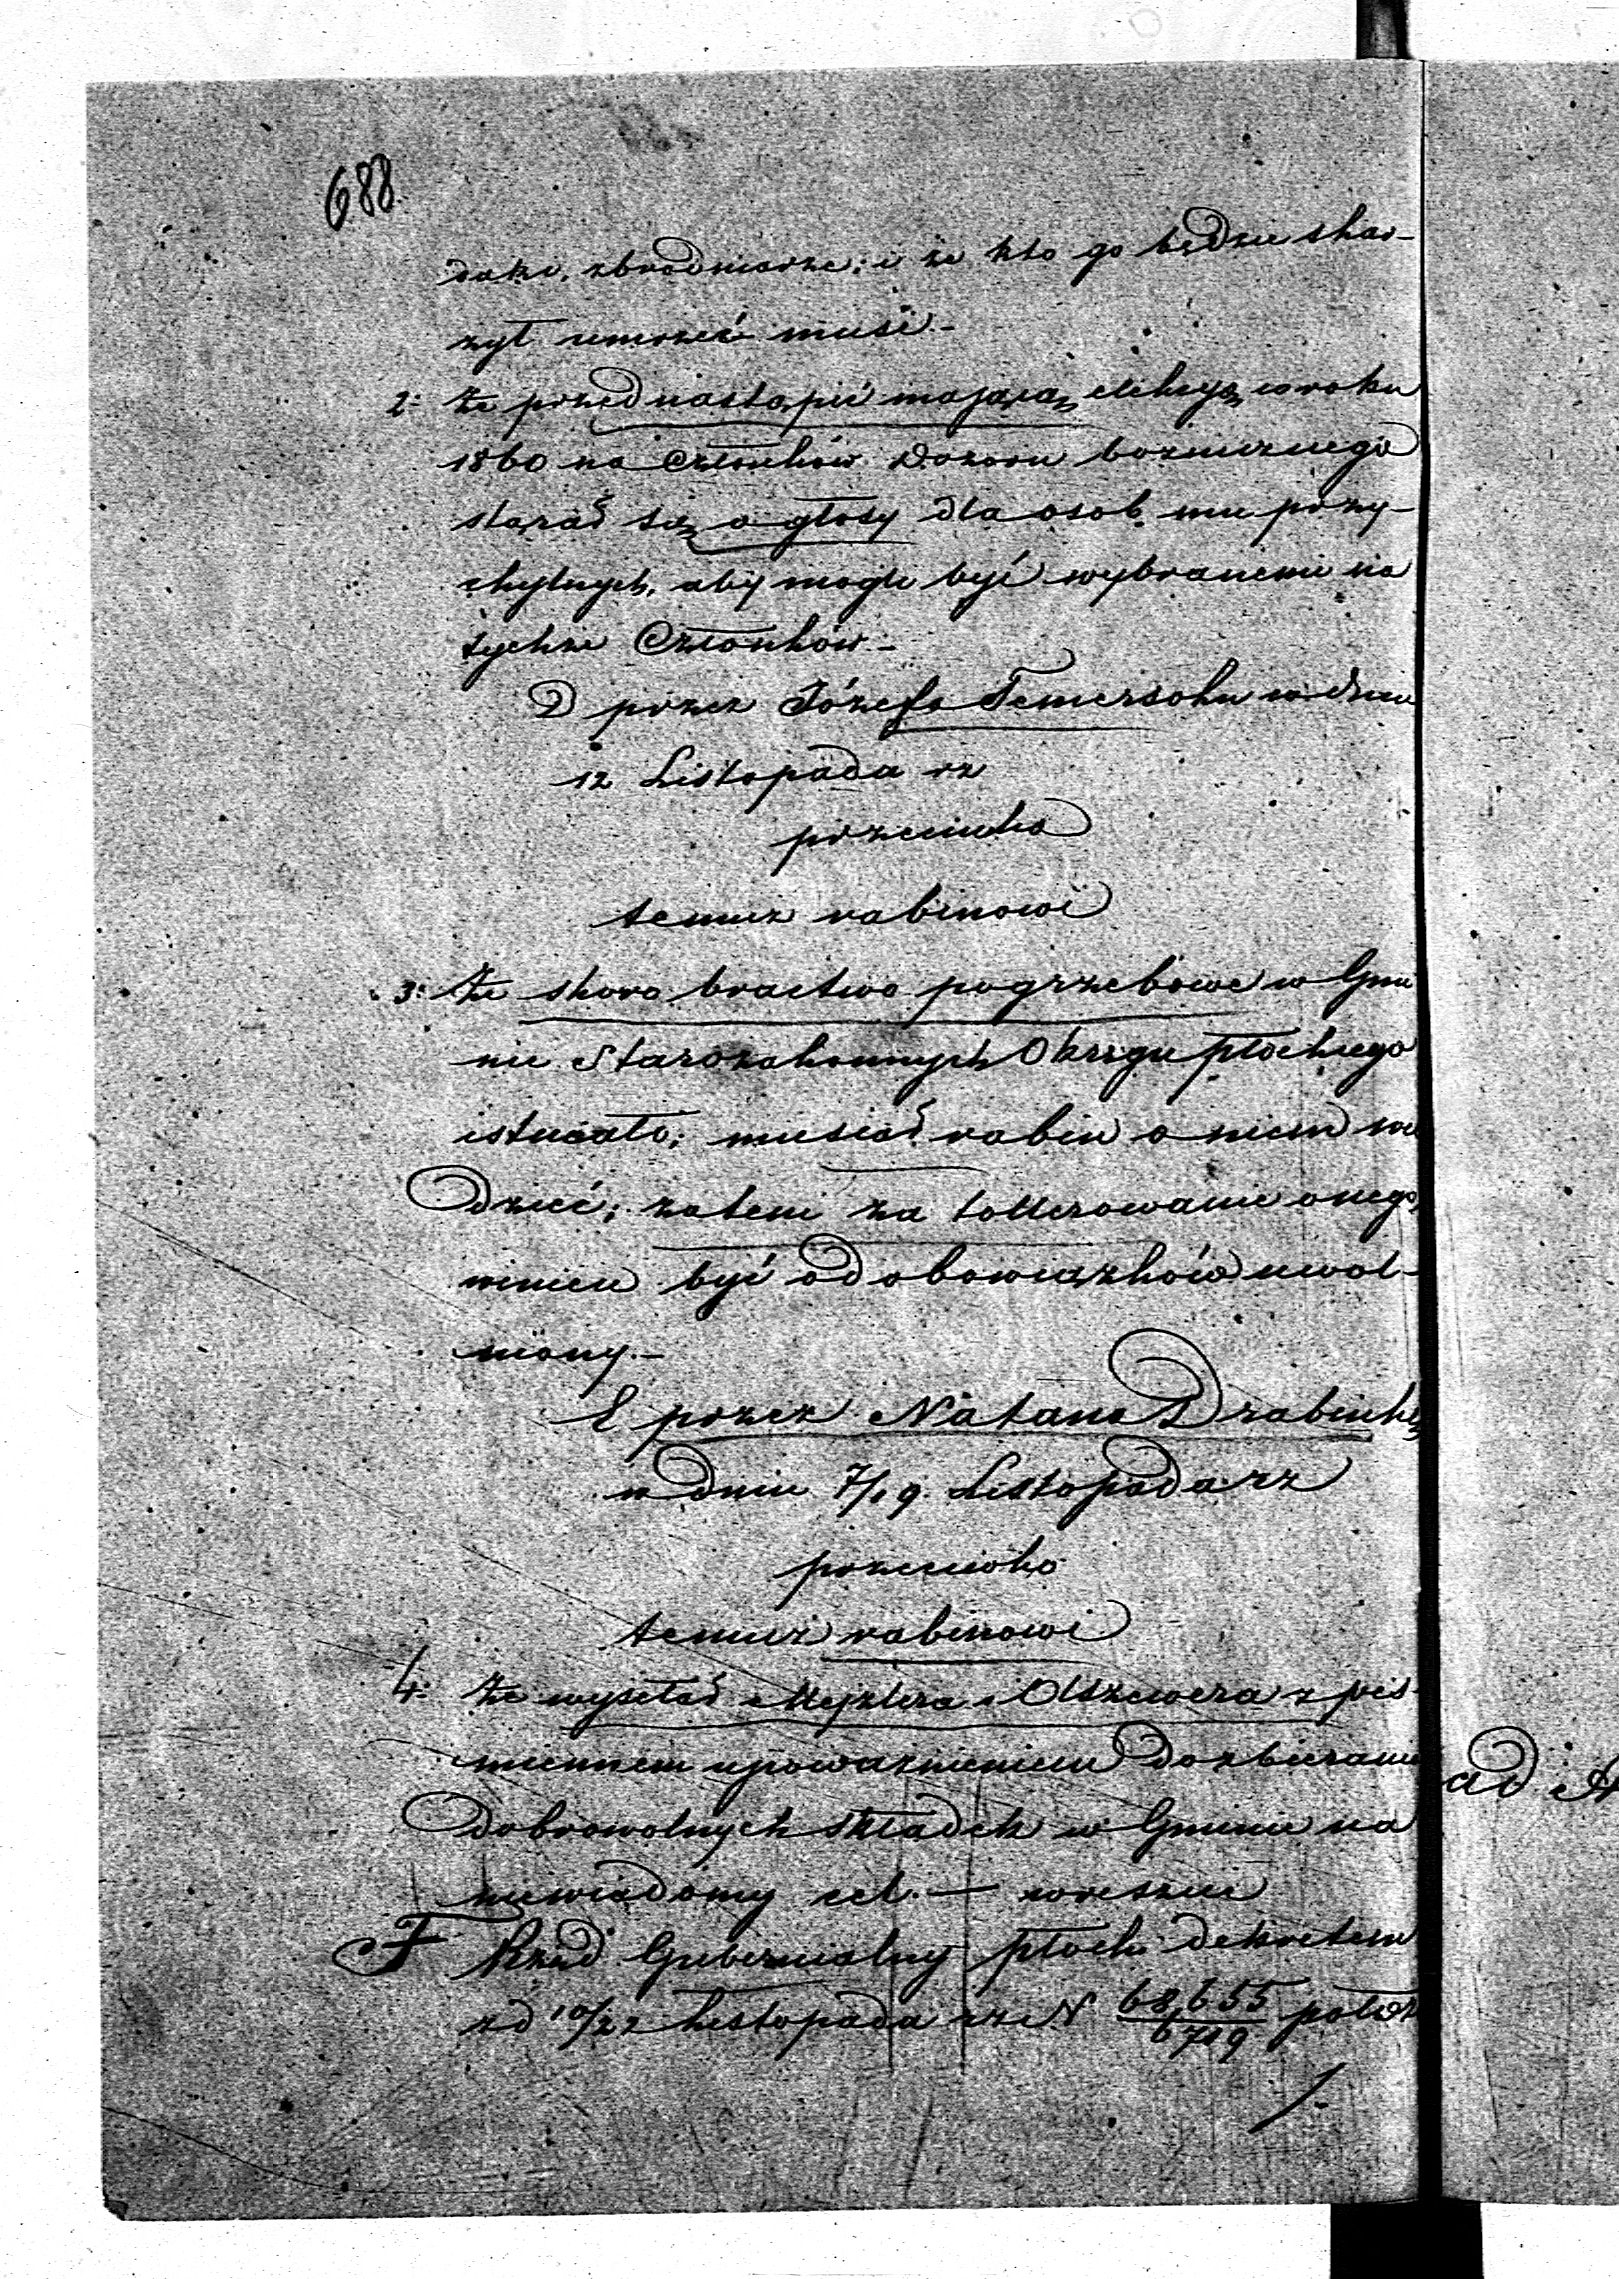 688.
zbrodniarze; i że kto go będzie skar-
żył umrzeć musi.-
2: Że przed nastąpić mającą elekcyą w roku
1860 na Członków Dozoru bożniczego
starał się o głosy dla osob mu przy-
chylnych, aby mogli być wybranemi na
tychże Członków.-
D przez Józefa Temersohn w dniu
12 Listopada rz
przeciwko
temuż rabinowi
3: Że skoro bractwo pogrzebowe w Gmi
nie Starozakonnych Okręgu płockiego
istniało; musiał rabin o niem wie
dzieć; zatem za tollerowanie onego,
winien być od obowiązków uwol-
niony.-
E przez Natana Drabinkę
w dniu 7/19. Listopada rz
przeciwko
temuż rabinowi
4: Że wysełał Meyzlera i Olszewera z piś
miennem upoważnieniem do zbierania
dobrowolnych składek w Gminie na
niewiadomy cel. — wreszcie
F Rząd Gubernialny płocki dekretem
zd 10/22 Listopada rz N 68,655/6719
ad A